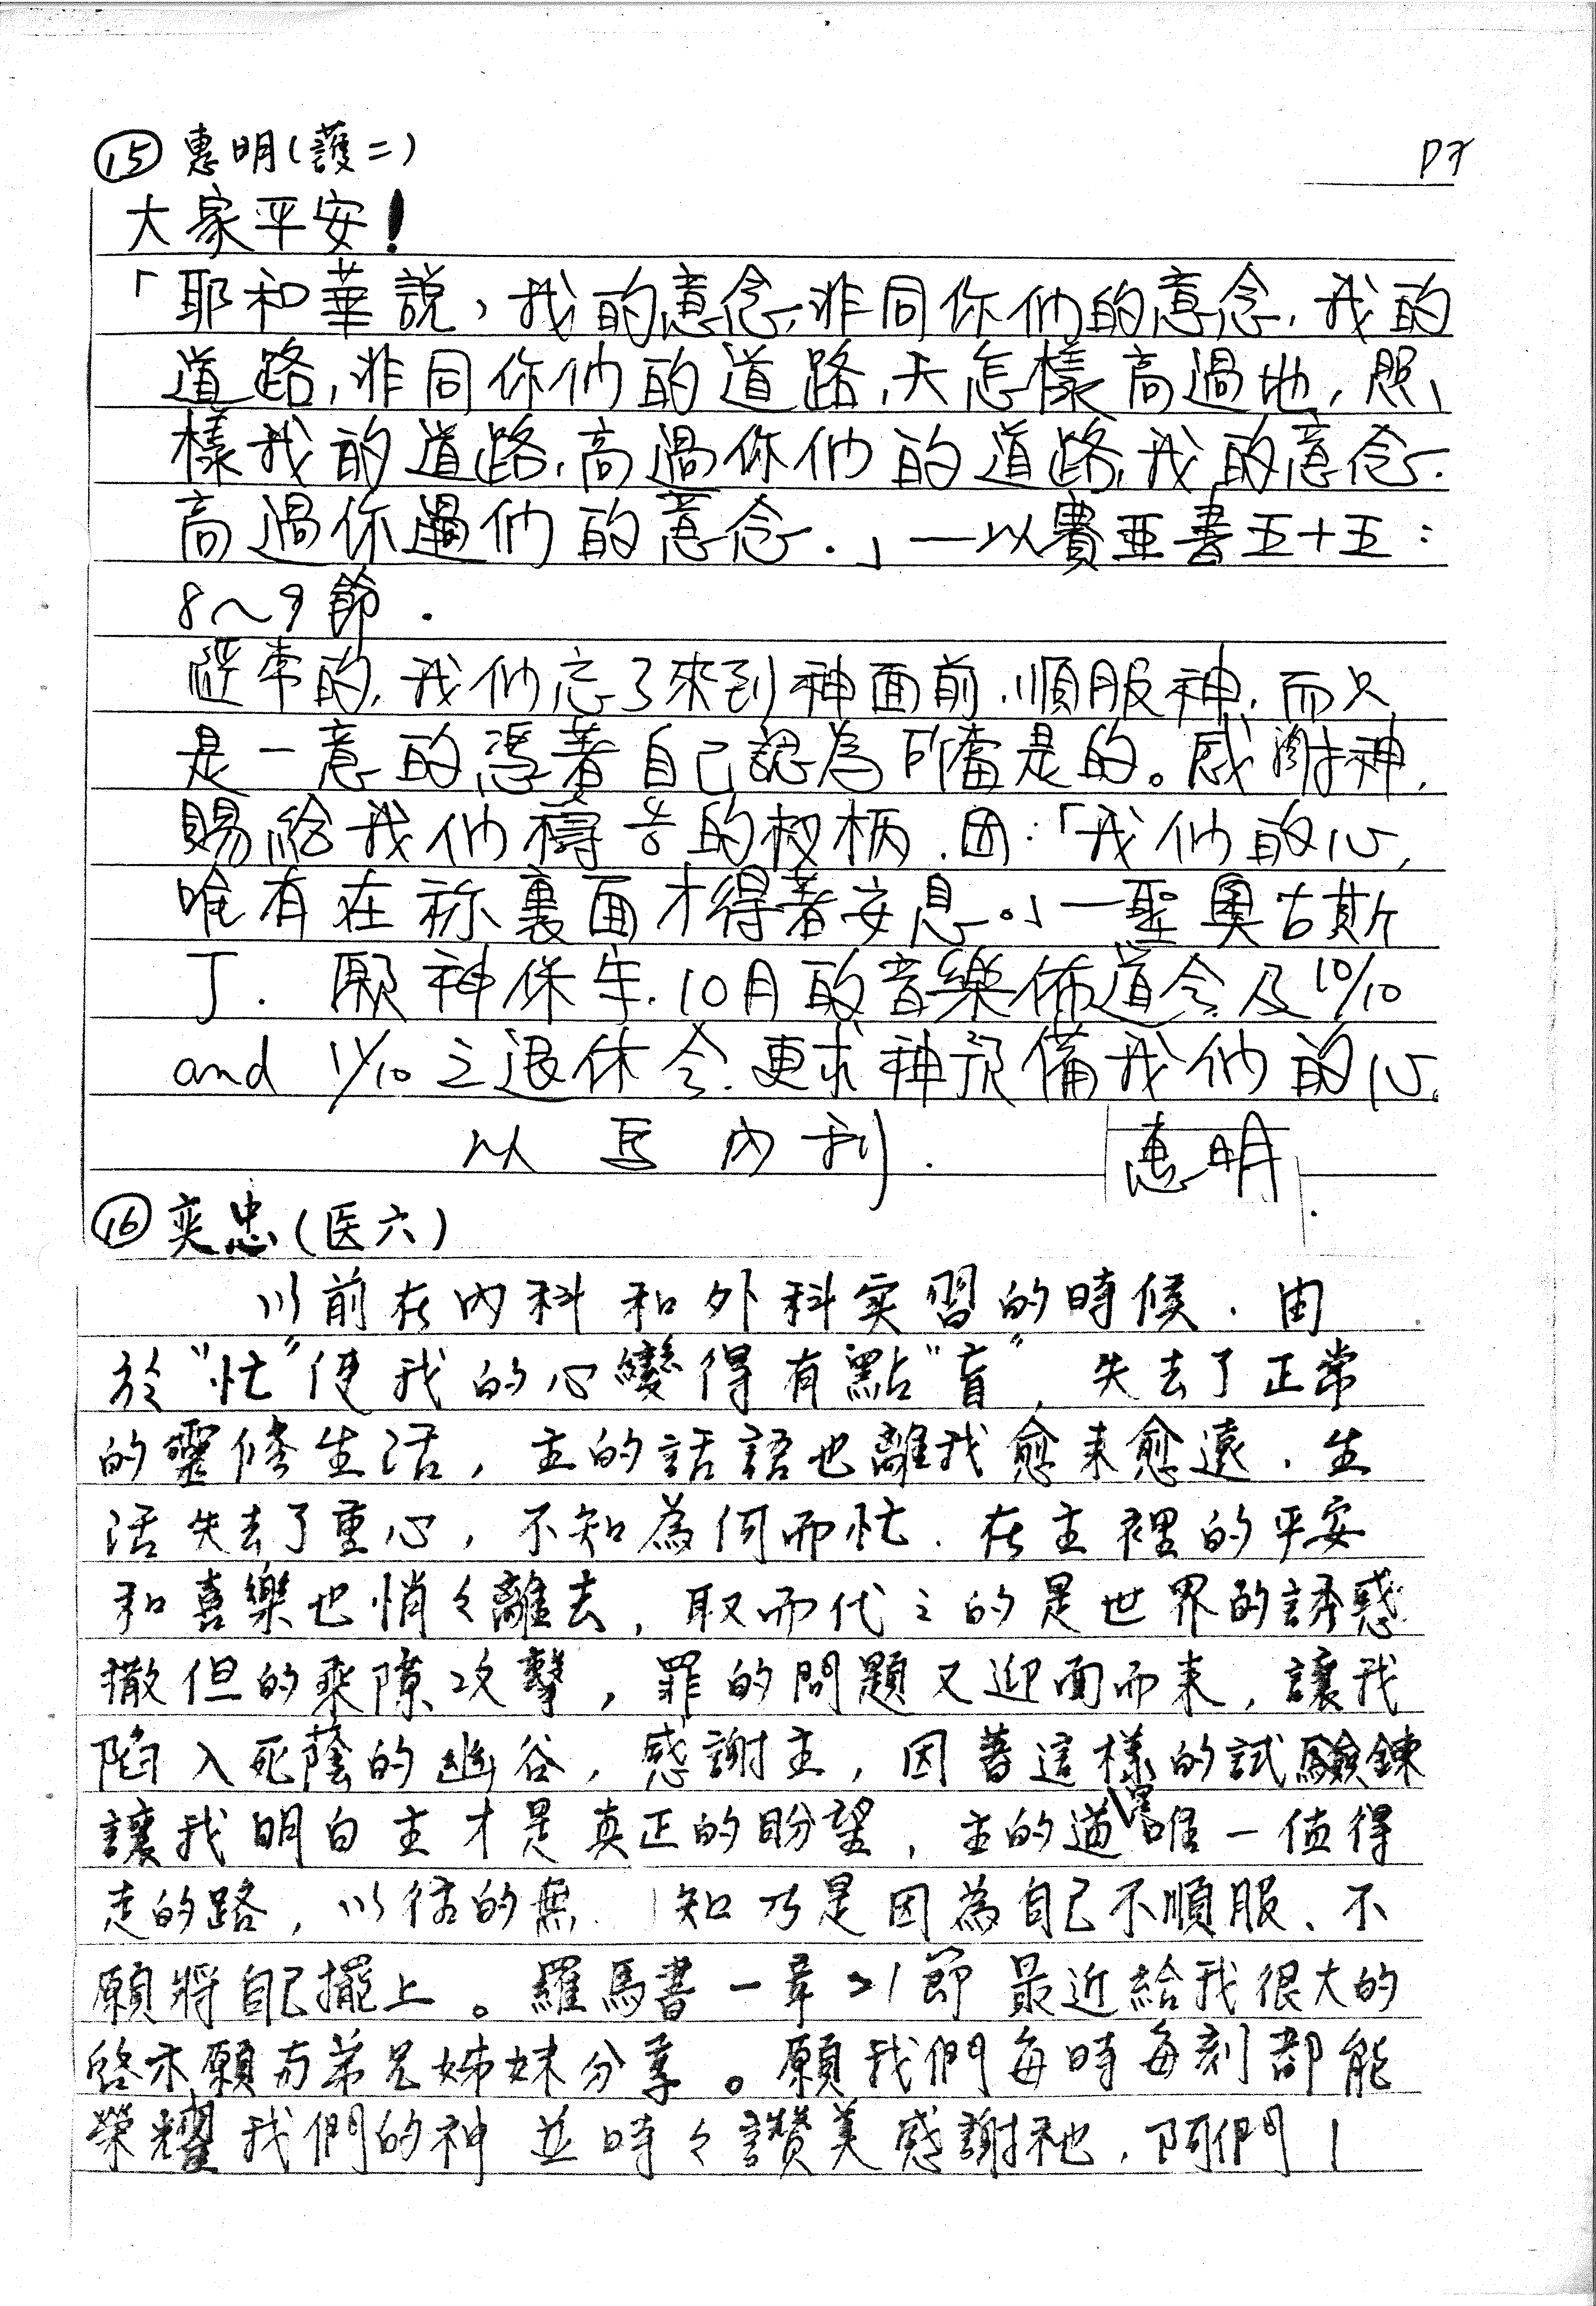 ⑮ 惠明(護二)
P7
大家平安!
「耶和華說，我的意念，非同你们的意念，我的
道路，非同你们的道路，天怎樣高過地，照
樣我的道路，高過你们的道路，我的意念，
高過你们的意念．」—以賽亞書五十五：
8～9節．
經常的，我们忘了來到神面前，順服神，而只
是一意的憑著自己認為所當是的。感謝神，
賜給我们禱告的权柄．因：「我们的心，
唯有在祢裏面才得著安息。」—聖奧古斯
丁．願神保守，10月的音樂佈道会及10/10
and 11/10之退休会．更求神預備我们的心．
以馬內利．惠明
⑯ 奕忠(医六)
以前在內科和外科实習的時候．由
於"忙"使我的心變得有點"盲"，失去了正常
的靈修生活，主的話語也離我愈来愈遠．生
活失去了重心，不知為何而忙．在主裡的平安
和喜樂也悄々離去，取而代之的是世界的誘惑
撒但的乘隙攻擊，罪的問題又迎面而来，讓我
陷入死蔭的幽谷，感謝主，因著這樣的試驗鍊
讓我明白主才是真正的盼望，主的道是唯一值得
走的路，以往的無知乃是因為自己不順服、不
願將自己擺上。羅馬書一章21節最近給我很大的
啓示願与弟兄姊妹分享。願我們每時每刻都能
榮耀我們的神並時々讚美感謝祂．阿們！